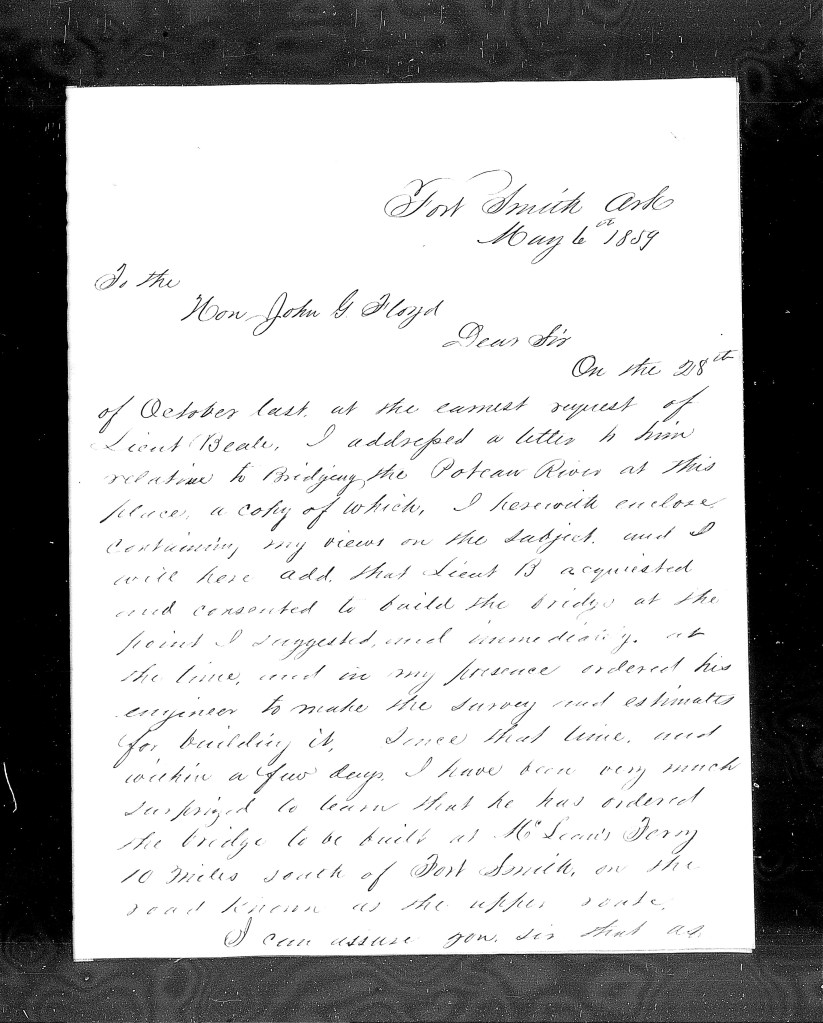 Fort Smith Ark
May 6th 1859
To the
Hon John G Floyd
Dear Sir
On the 28th
of October last, at the earnest request of
Lieut Beale, I addressed a letter to him
relative to Bridging the Poteau River at this
place, a copy of which, I herewith enclose
containing my views on the subject. and I
will here add. that Lieut B acquiested
and consented to build the bridge at the
point I suggested, and immediatly. at
the time, and in my presence ordered his
engineer to make the survey and estimates
for building it, Since that time, and
within a few days, I have been very much
surprized to learn that he has ordered
the bridge to be built at McLean's Ferry
10 miles south of Fort Smith, on the
road known as the upper route,
I can assure you, sir that as